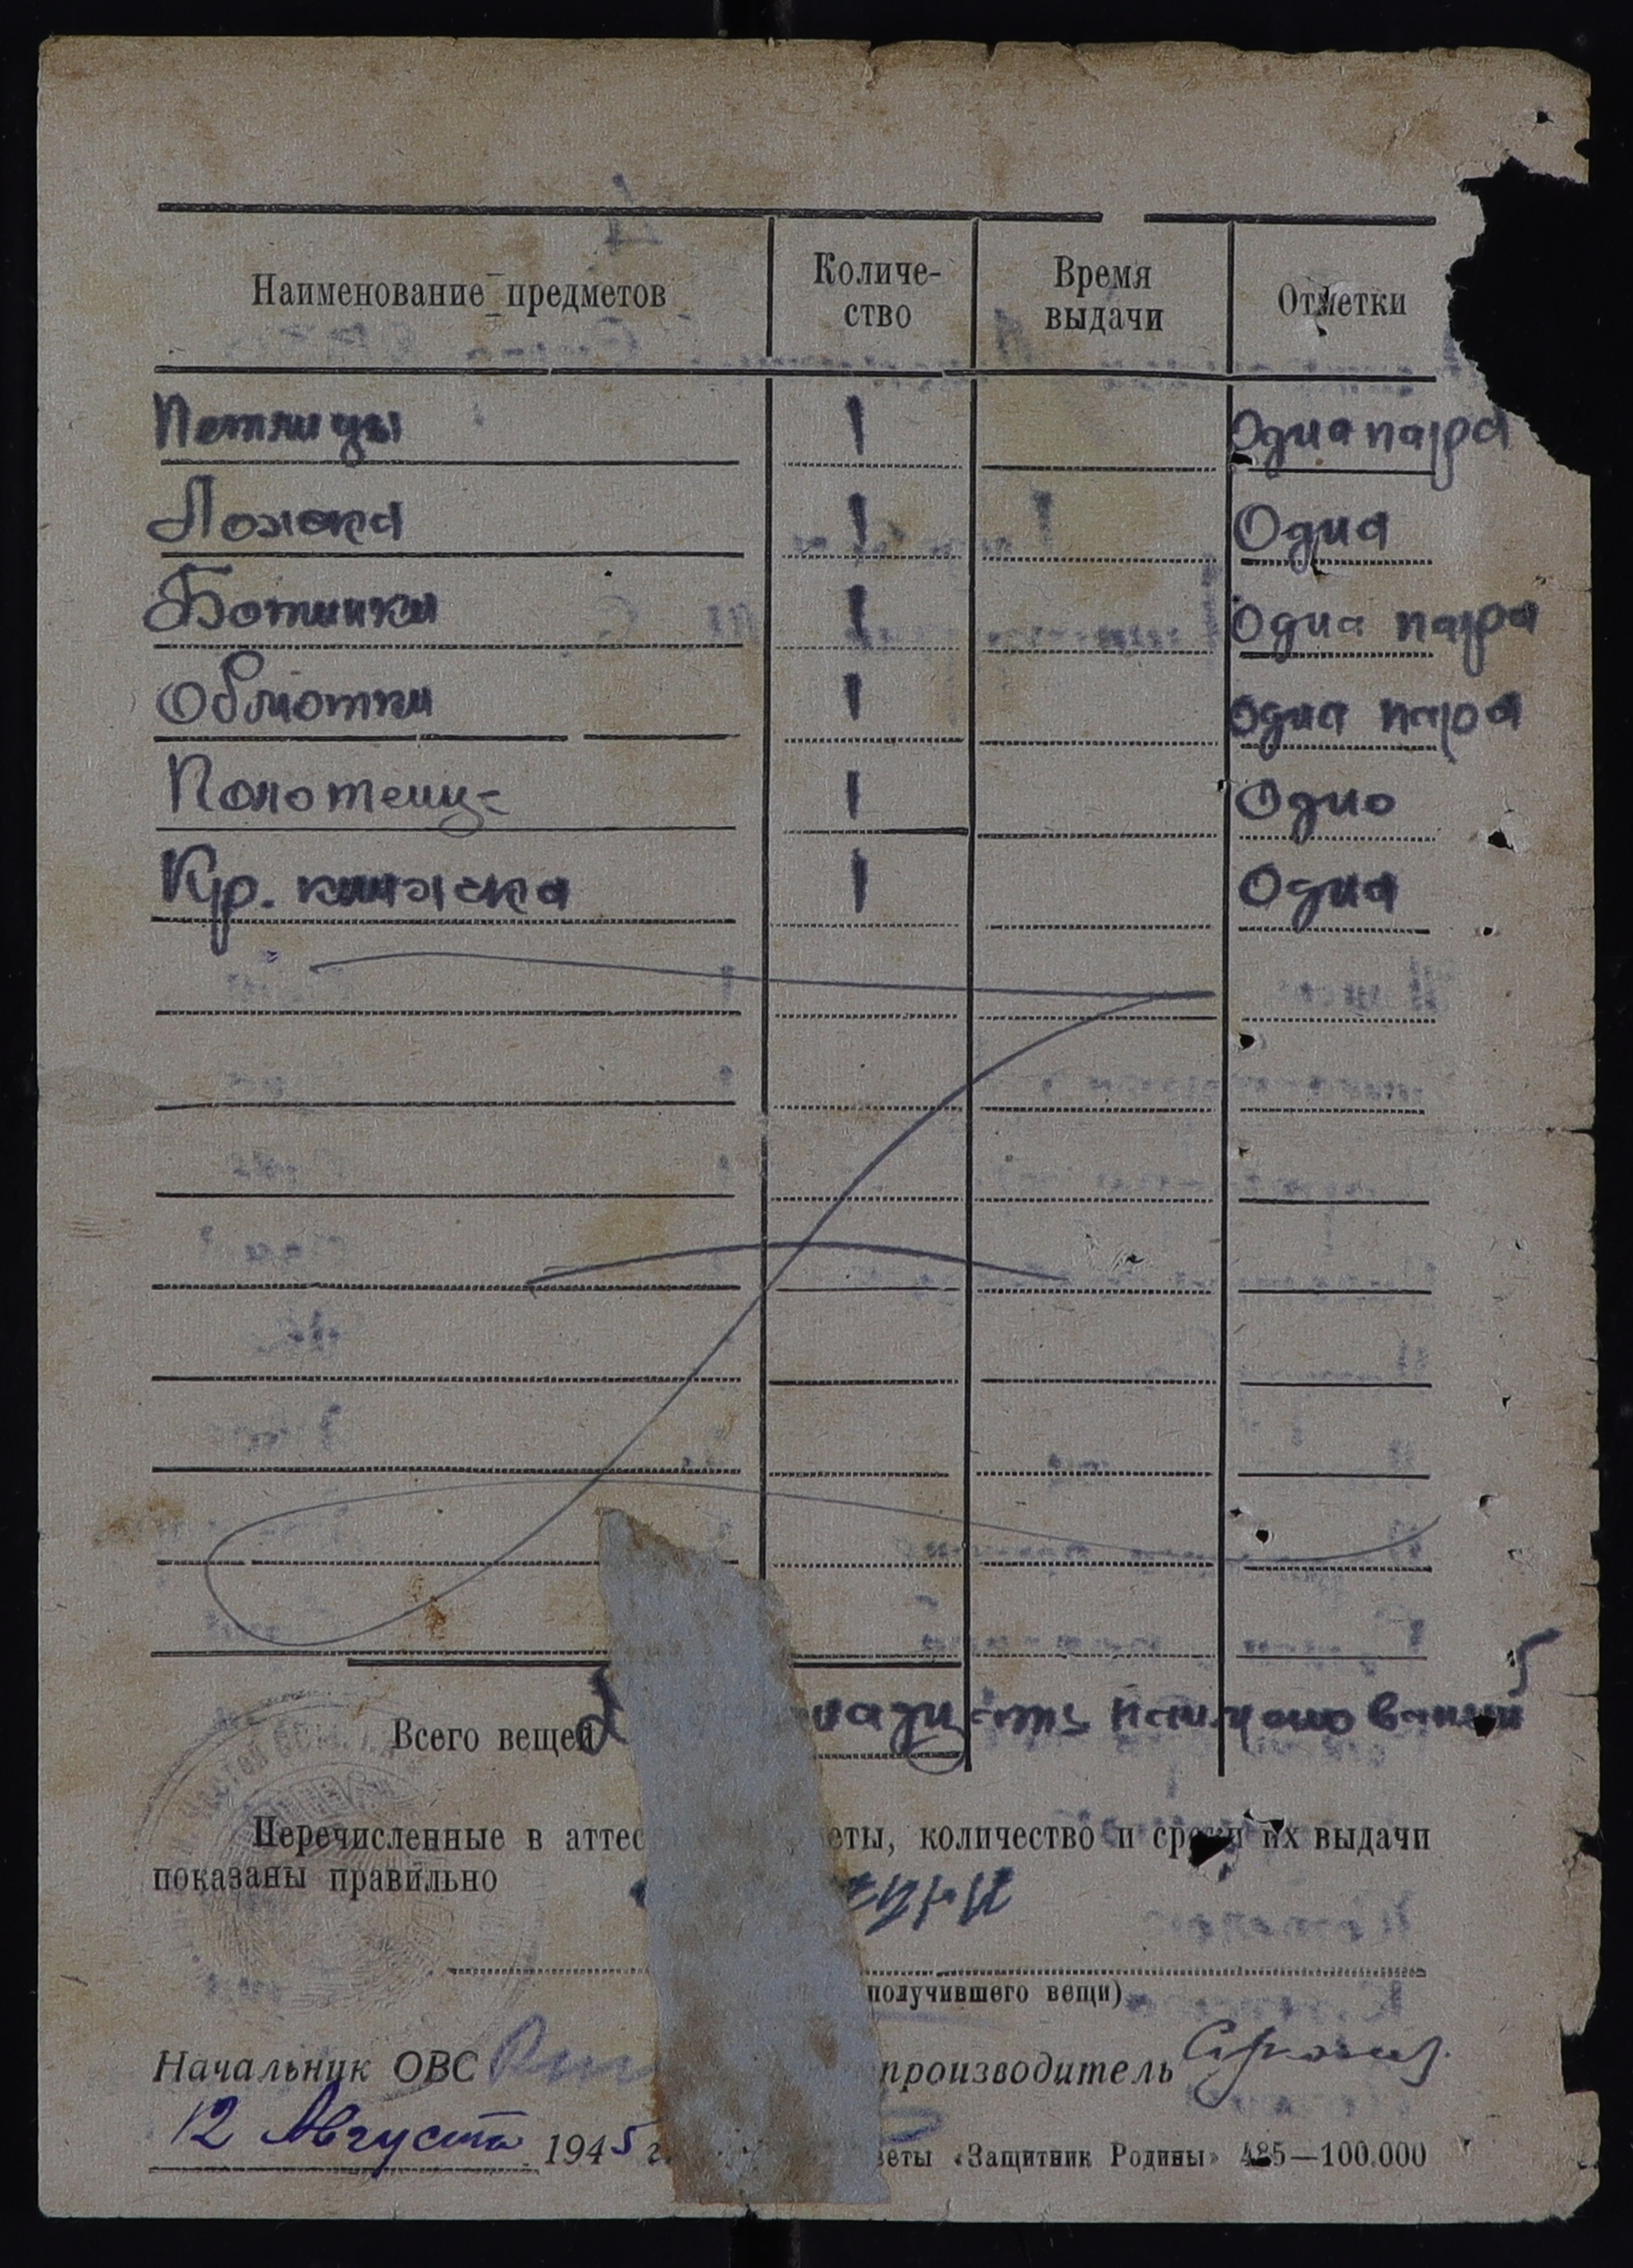 Наименование предметов Количе- Время Отметки
ство выдачи
Петлицы 1 Одна пара
Ложка 1 Одна
Ботинки 1 Одна пара
Обмотки 1 одна пара
Полотенце 1 Одно
Кр. книжка 1 Одна
Всего вещей наименований
Перечисленные в аттес еты, количество и сроки их выдачи
показаны правильно
получившего вещи)
Начальник ОВС производитель
12 Августа 1945 г.
зеты «Защитник Родины» 485—100.000